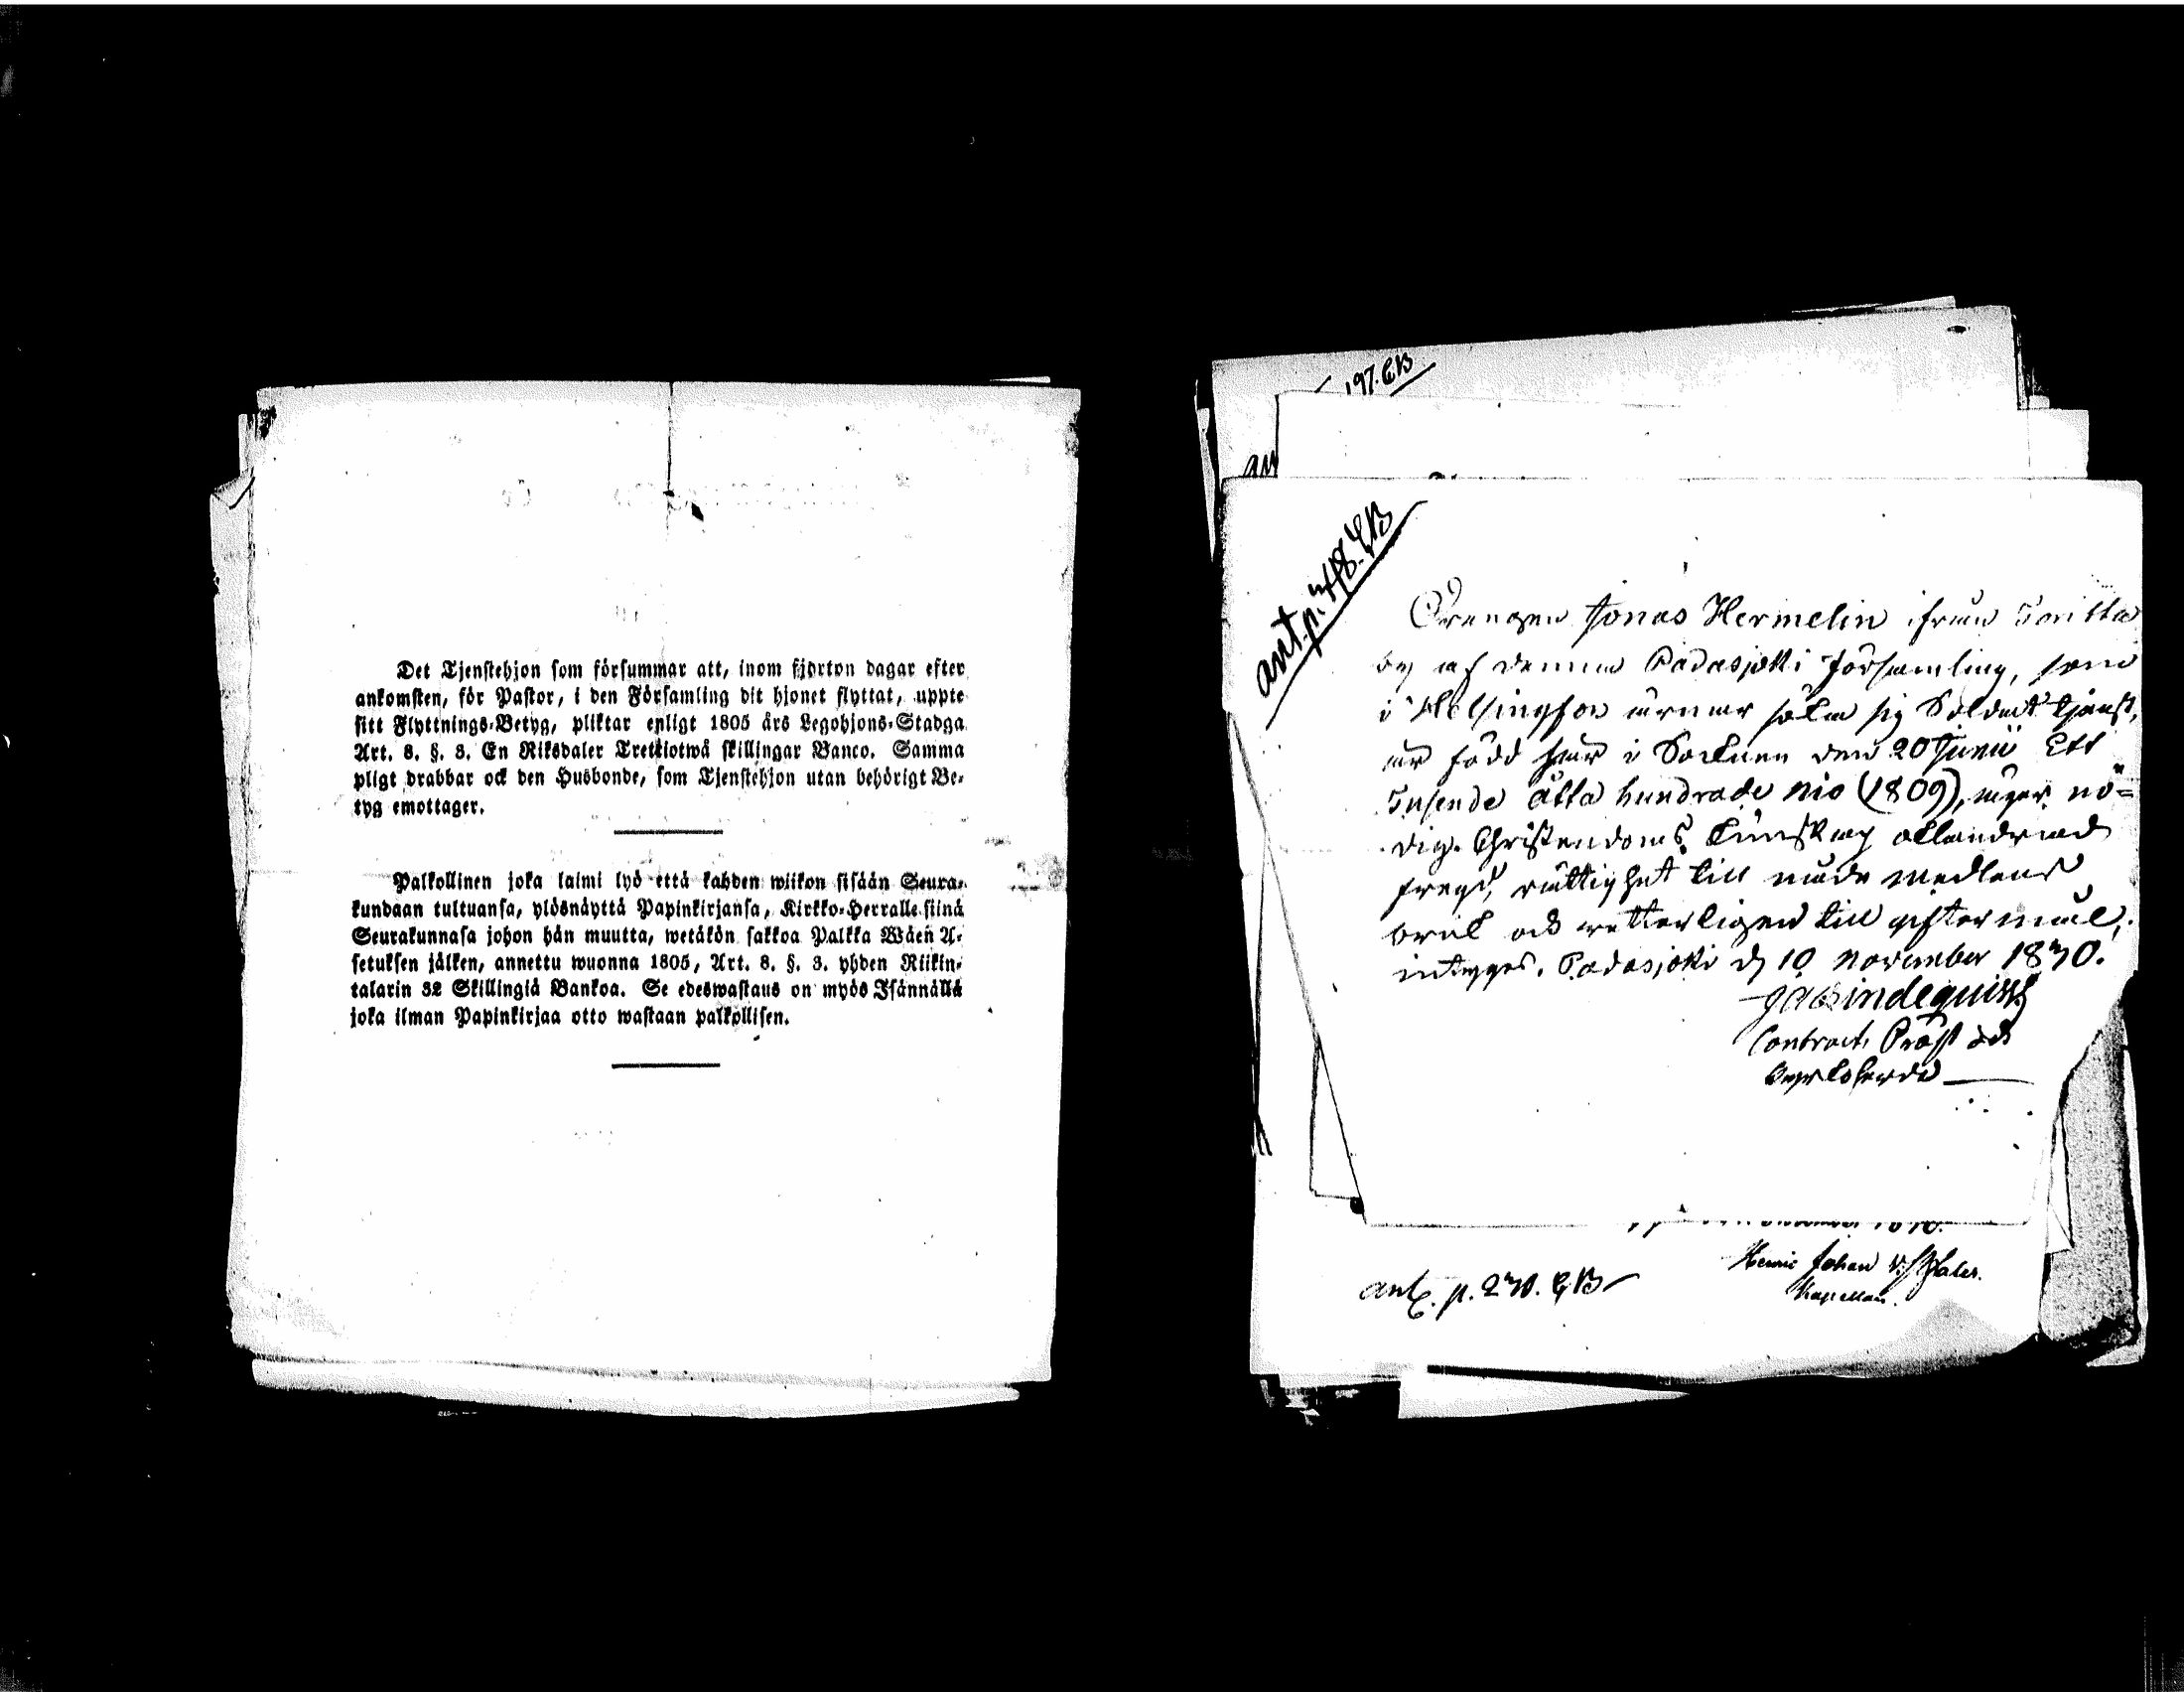 Det Tjenstehjon som försummar att, inom fjorton dagar efter
ankomsten, för Pastor, i den Församling dit hjonet flyttat, uppte
sitt Flyttnings-Betyg, pliktar enligt 1805 års Legohjons-Stadga
Art. 8. §. 3. En Riksdaler Trettiotwå skillingar Banco. Samma
pligt drabbar ock den Husbonde, som Tjenstehjon utan behörigt Be-
tyg emottager.
Palkollinen joka laimi lyö että kahden wiikon sisään Seura-
kundaan tultuansa, ylösnäyttä Papinkirjansa, Kirkko-Herralle siinä
Seurakunnasa johon hän muutta, wetäkön sakkoa Palkka Wäen A-
setuksen jälken, annettu wuonna 1805, Art. 8. §. 3. yhden Riikin-
talarin 32 Skillingiä Bankoa. Se edeswastaus on myös Isännällä
joka ilman Papinkirjaa otto wastaan palkollisen.
197. EB
an
ant. p. 418. EB
Drengen Jonas Hermelin ifrån
by af denna Padasjoki församling, som
i Helsingfors ärnar sig Soldat tjenst,
är född här i Socknen den 20 Junii Ett
Tusende åtta hundrade nio (1809), äger nö=
dig Christendoms Kunskap oklandrad
fregd, rättighet till nåde medlens
bruk och är ledig till giftermål,
intygas. Padasjoki d 10 november 1830.
Contracts Prost och
Kyrkoherde
Johan
Kapellan.
ant. p. 230. EB